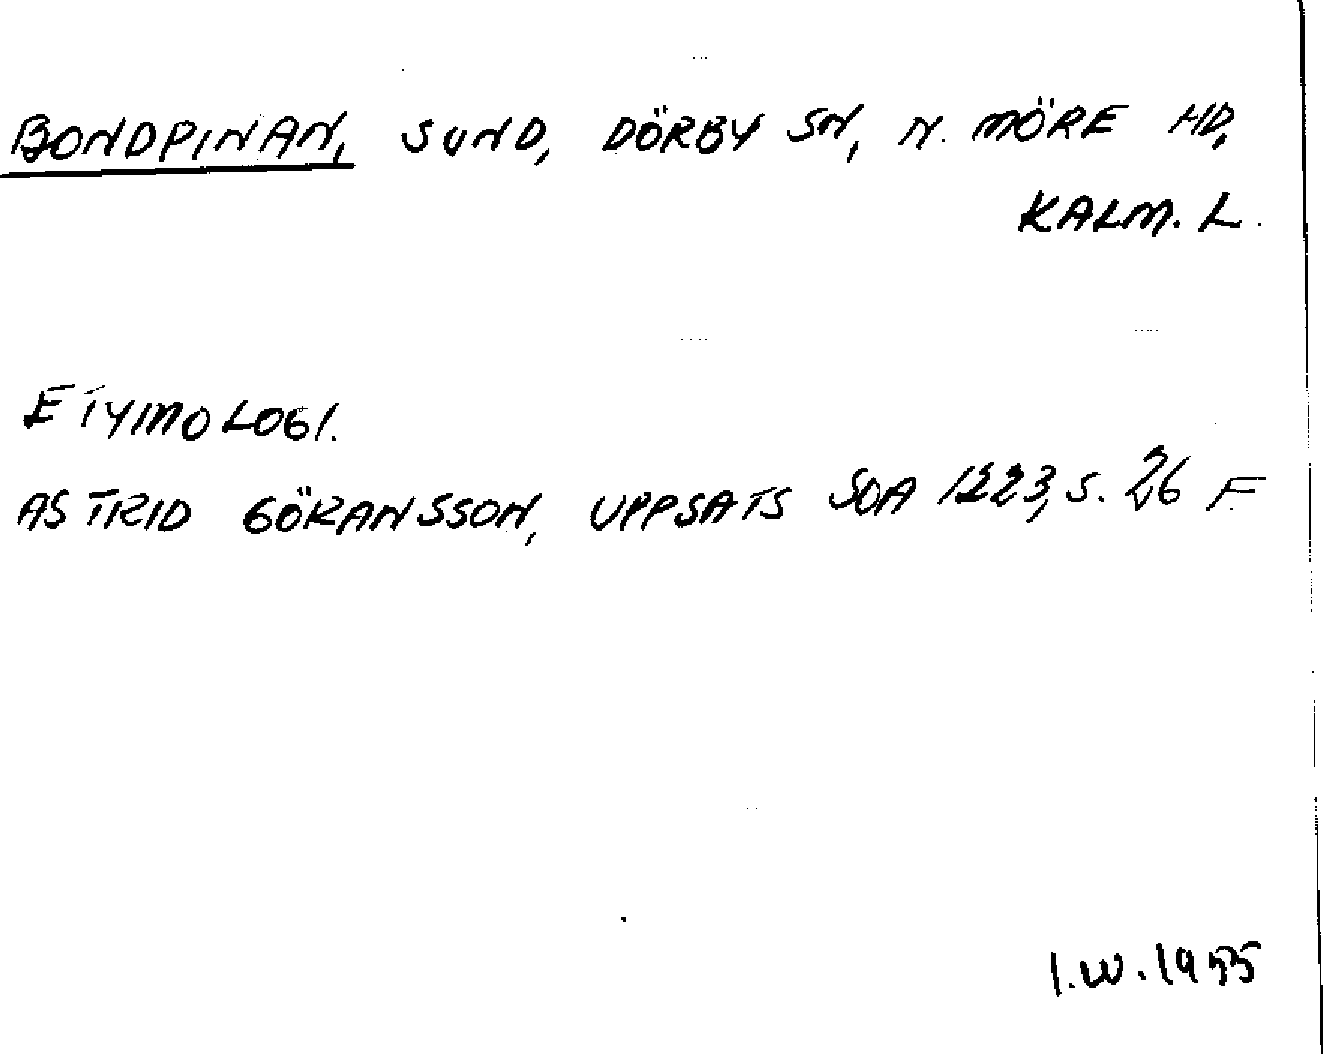 BONDPINAN, SUND, DÖRBY SN, N. MÖRE HD,
KALM. L.
ETYMOLOGI.
ASTRID GÖRANSSON, UPPSATS SOA 1223, S. 26 F
I.W. 1955